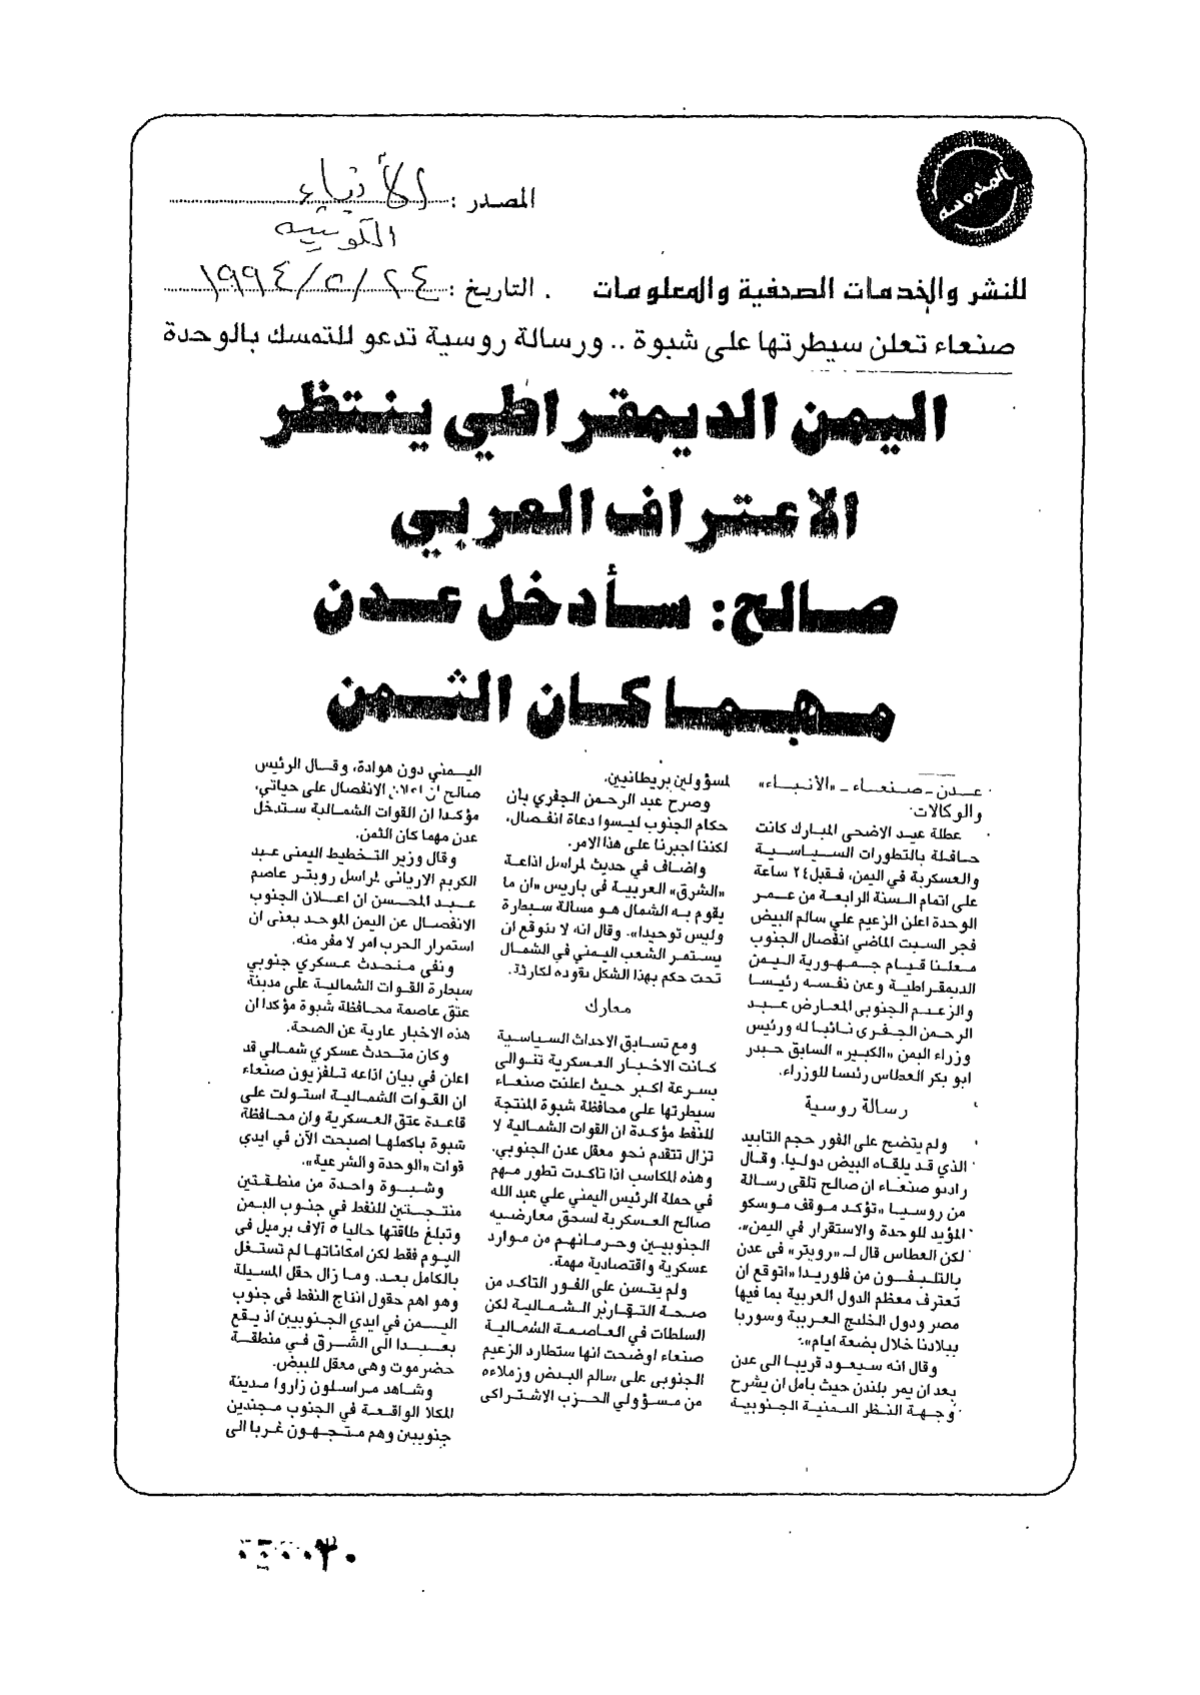 المحروسة
المصدر : الأنباء
الكويتيه
للنشر والخدمات الصحفية والمعلومات
التاريخ : ٢٤/٥/١٩٩٤
صنعاء تعلن سيطرتها على شبوة .. ورسالة روسية تدعو للتمسك بالوحدة
اليمن الديمقراطي ينتظر
الاعتراف العربي
صالح: سأدخل عدن
مهما كان الثمن
عدن ـ صنعاء ـ «الأنباء»
والوكالات:
عطلة عيد الاضحى المبارك كانت
حافلة بالتطورات السياسية
والعسكرية في اليمن، فقبل ٢٤ ساعة
على اتمام السنة الرابعة من عمر
الوحدة اعلن الزعيم علي سالم البيض
فجر السبت الماضي انفصال الجنوب
معلنا قيام جمهورية اليمن
الديمقراطية وعين نفسه رئيسا
والزعيم الجنوبي المعارض عبد
الرحمن الجفري نائبا له ورئيس
وزراء اليمن «الكبير» السابق حيدر
ابو بكر العطاس رئيسا للوزراء.
رسالة روسية
ولم يتضح على الفور حجم التاييد
الذي قد يلقاه البيض دوليا. وقال
راديو صنعاء ان صالح تلقى رسالة
من روسيا «تؤكد موقف موسكو
المؤيد للوحدة والاستقرار في اليمن».
لكن العطاس قال لـ «رويتر» في عدن
بالتليفون من فلوريدا «اتوقع ان
تعترف معظم الدول العربية بما فيها
مصر ودول الخليج العربية وسوريا
ببلادنا خلال بضعة ايام».
وقال انه سيعود قريبا الى عدن
بعد ان يمر بلندن حيث يامل ان يشرح
وجهة النظر اليمنية الجنوبية
لمسؤولين بريطانيين.
وصرح عبد الرحمن الجفري بأن
حكام الجنوب ليسوا دعاة انفصال،
لكننا اجبرنا على هذا الامر.
واضاف في حديث لمراسل اذاعة
«الشرق» العربية في باريس «ان ما
يقوم به الشمال هو مسالة سيطرة
وليس توحيدا». وقال انه لا يتوقع ان
يستمر الشعب اليمني في الشمال
تحت حكم بهذا الشكل يقوده لكارثة.
معارك
ومع تسابق الاحداث السياسية
كانت الاخبار العسكرية تتوالى
بسرعة اكبر حيث اعلنت صنعاء
سيطرتها على محافظة شبوة المنتجة
للنفط مؤكدة ان القوات الشمالية لا
تزال تتقدم نحو معقل عدن الجنوبي.
وهذه المكاسب اذا تاكدت تطور مهم
في حملة الرئيس اليمني علي عبد الله
صالح العسكرية لسحق معارضيه
الجنوبيين وحرمانهم من موارد
عسكرية واقتصادية مهمة.
ولم يتسن على الفور التأكد من
صحة التقارير الشمالية لكن
السلطات في العاصمة الشمالية
صنعاء اوضحت انها ستطارد الزعيم
الجنوبي على سالم البيض وزملاءه
من مسؤولي الحزب الاشتراكي
اليمني دون هوادة، وقال الرئيس
صالح ان اعلان الانفصال على حياتي،
مؤكدا ان القوات الشمالية ستدخل
عدن مهما كان الثمن.
وقال وزير التخطيط اليمني عبد
الكريم الارياني لمراسل رويتر عاصم
عبد المحسن ان اعلان الجنوب
الانفصال عن اليمن الموحد يعني ان
استمرار الحرب امر لا مفر منه.
ونفى متحدث عسكري جنوبي
سيطرة القوات الشمالية على مدينة
عتق عاصمة محافظة شبوة مؤكدا ان
هذه الاخبار عارية عن الصحة.
وكان متحدث عسكري شمالي قد
اعلن في بيان اذاعه تلفزيون صنعاء
ان القوات الشمالية استولت على
قاعدة عتق العسكرية وان محافظة
شبوة باكملها اصبحت الآن في ايدي
قوات «الوحدة والشرعية».
وشبوة واحدة من منطقتين
منتجتين للنفط في جنوب اليمن
وتبلغ طاقتها حاليا ٥ آلاف برميل في
اليوم فقط لكن امكاناتها لم تستغل
بالكامل بعد. وما زال حقل المسيلة
وهو اهم حقول انتاج النفط في جنوب
اليمن في ايدي الجنوبيين اذ يقع
بعيدا الى الشرق في منطقة
حضرموت وهي معقل للبيض.
وشاهد مراسلون زاروا مدينة
المكلا الواقعة في الجنوب مجندين
جنوبيين وهم متجهون غربا الى